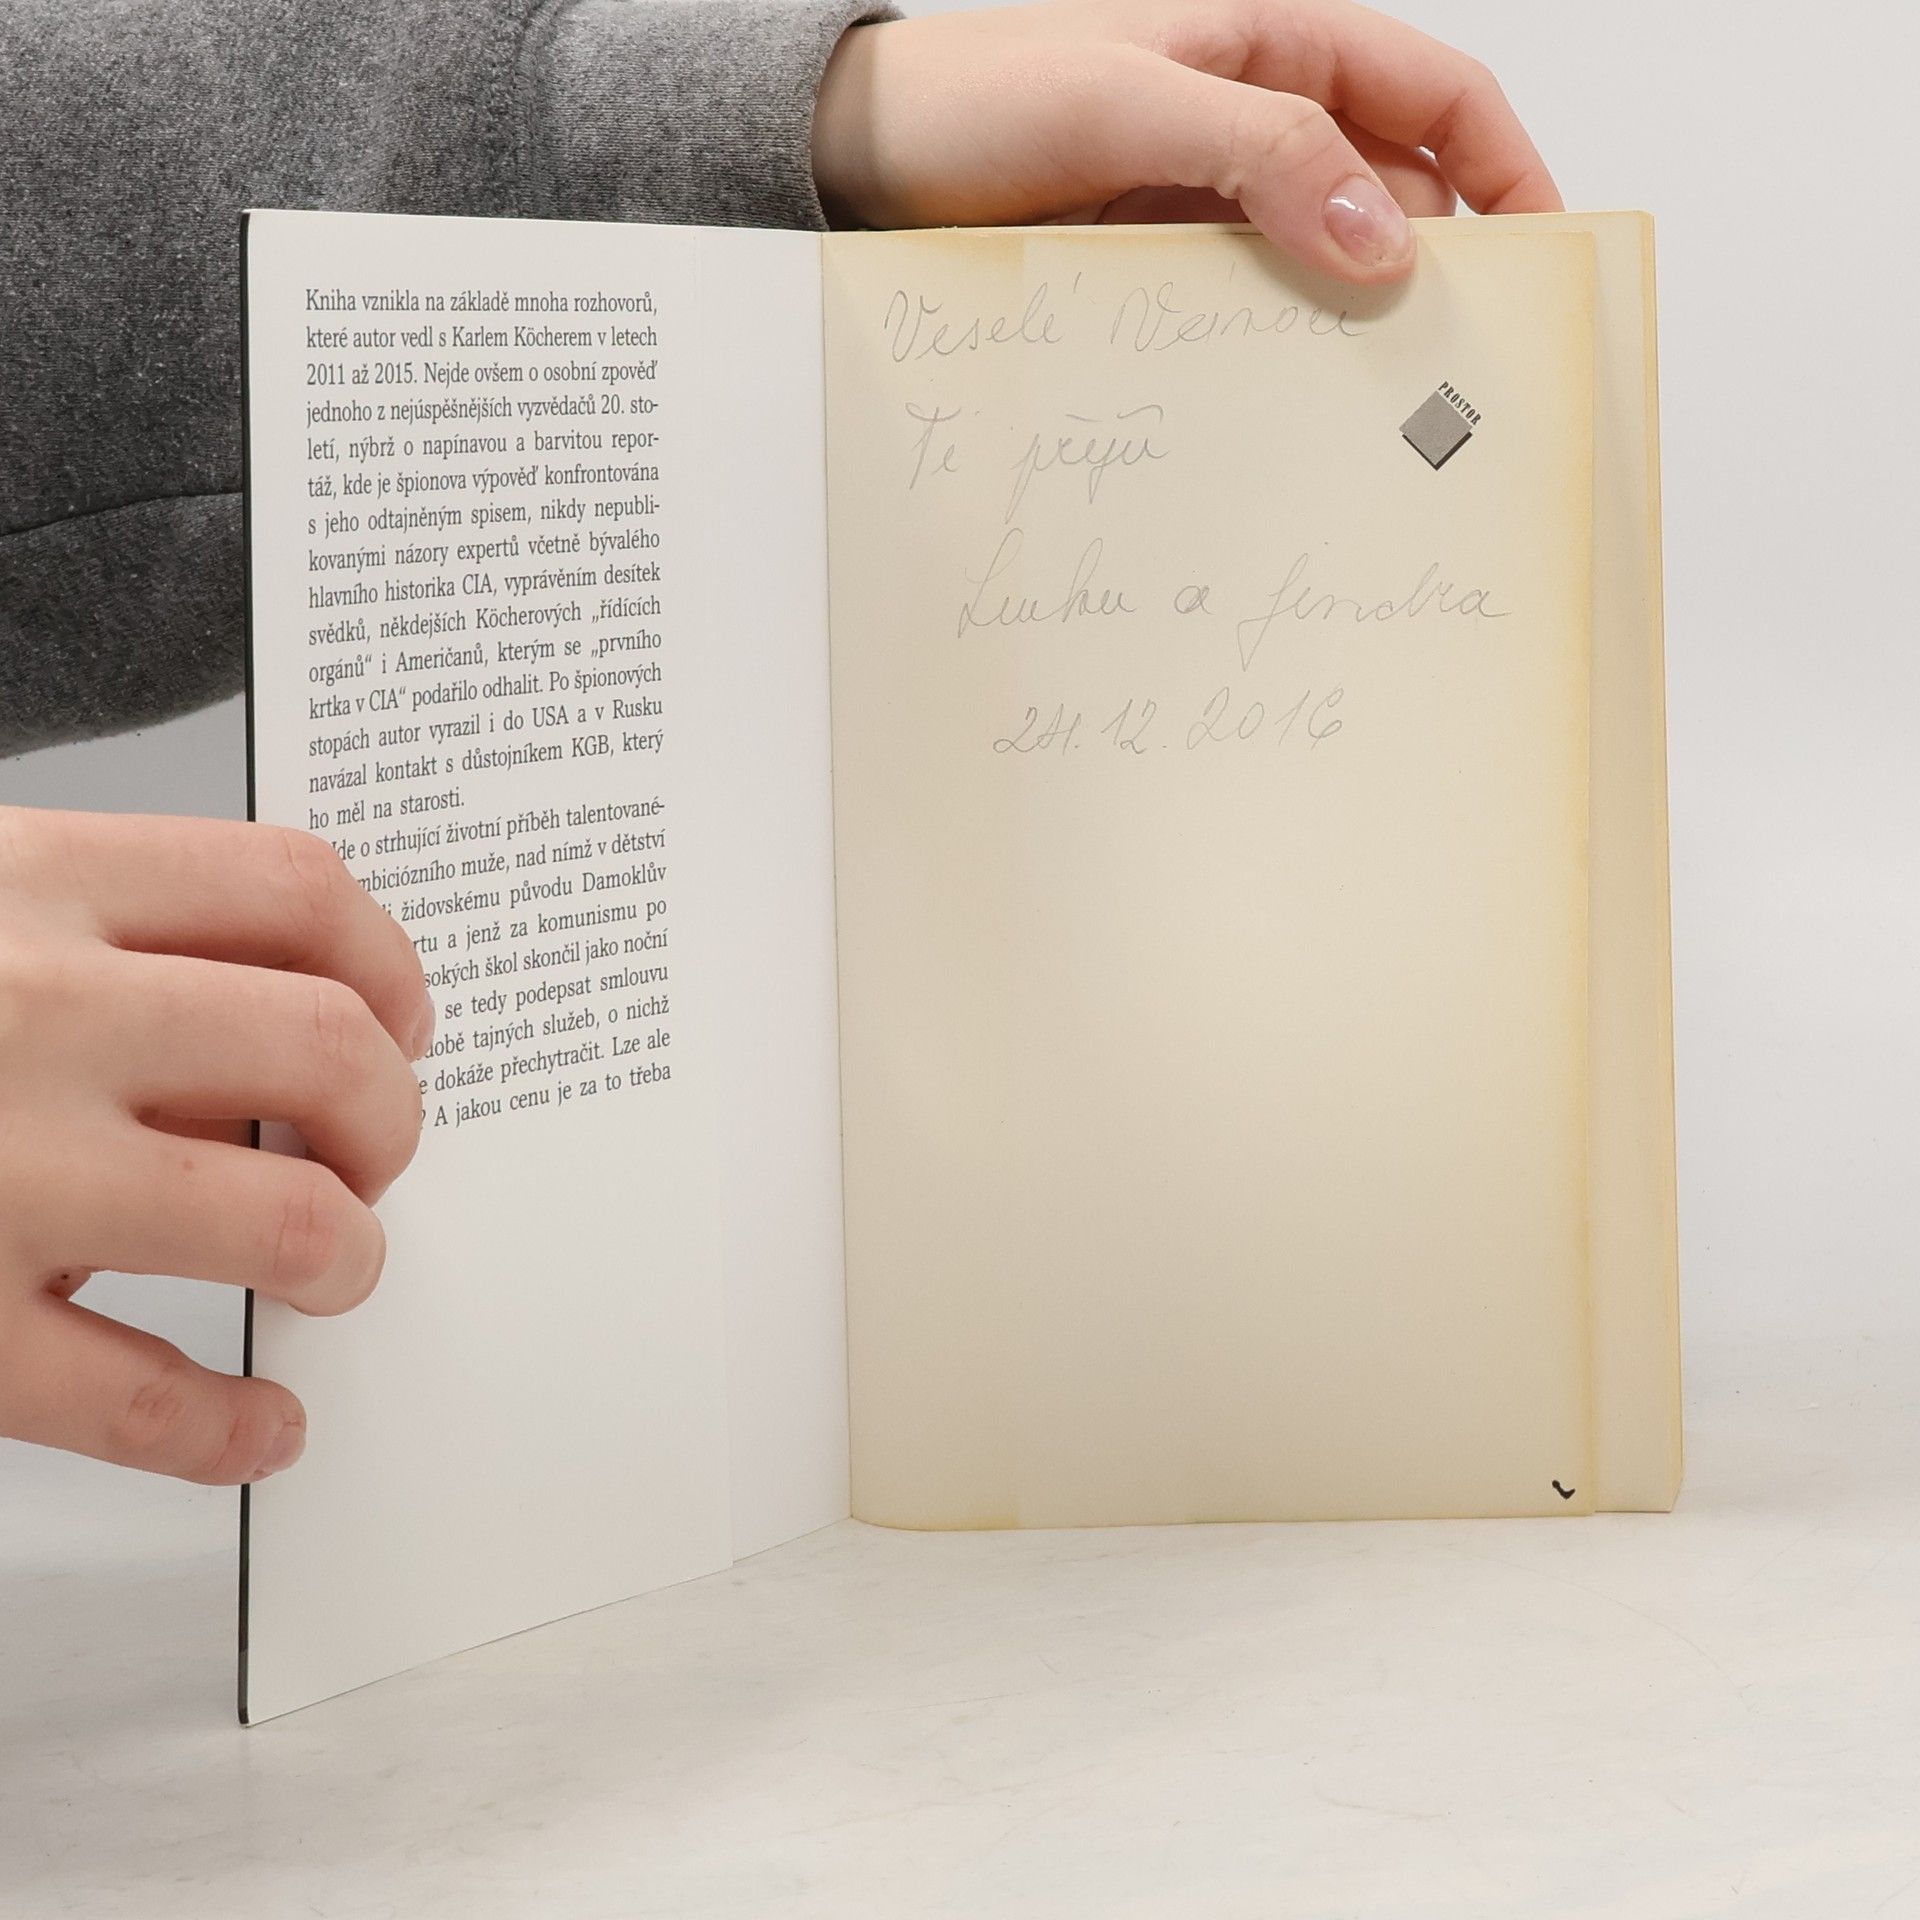 Kniha vznikla na základě mnoha rozhovorů,
které autor vedl s Karlem Köcherem v letech
2011 až 2015. Nejde ovšem o osobní zpověď
jednoho z nejúspěšnějších vyzvědačů 20. sto-
letí, nýbrž o napínavou a barvitou repor-
táž, kde je špionova výpověď konfrontována
s jeho odtajněným spisem, nikdy nepubli-
kovanými názory expertů včetně bývalého
hlavního historika CIA, vyprávěním desítek
svědků, někdejších Köcherových „řídících
orgánů“ i Američanů, kterým se „prvního
krtka v CIA“ podařilo odhalit. Po špionových
stopách autor vyrazil i do USA a v Rusku
navázal kontakt s důstojníkem KGB, který
ho měl na starosti.
Jde o strhující životní příběh talentované-
mbiciózního muže, nad nímž v dětství
židovskému původu Damoklův
rtu a jenž za komunismu po
sokých škol skončil jako noční
se tedy podepsat smlouvu
době tajných služeb, o nichž
e dokáže přechytračit. Lze ale
? A jakou cenu je za to třeba
Veselé Vánoce
Ti přejí
a Jindra
24. 12. 2016
PROSTOR